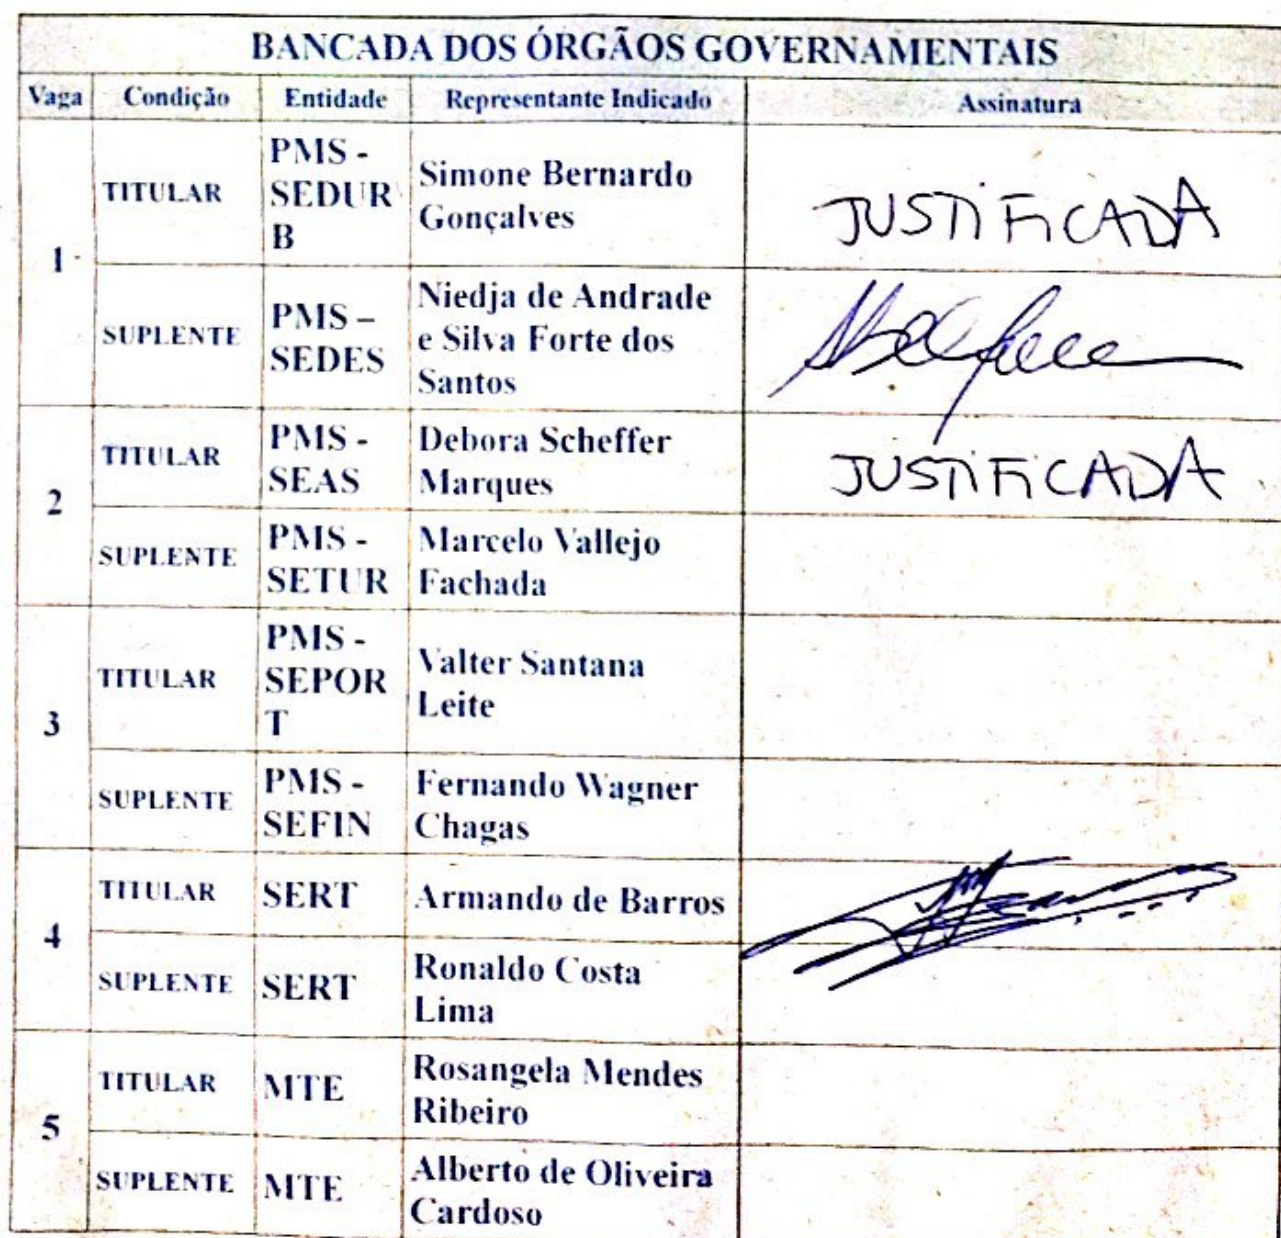 BANCADA DOS ÓRGÃOS GOVERNAMENTAIS
Vaga Condição Entidade Representante Indicado Assinatura
1
TITULAR
PMS -
SEDUR
B
Simone Bernardo
Gonçalves
JUSTIFICADA
SUPLENTE
PMS –
SEDES
Niedja de Andrade
e Silva Forte dos
Santos
2
TITULAR
PMS -
SEAS
Debora Scheffer
Marques
JUSTIFICADA
SUPLENTE
PMS -
SETUR
Marcelo Vallejo
Fachada
3
TITULAR
PMS -
SEPOR
T
Valter Santana
Leite
SUPLENTE
PMS -
SEFIN
Fernando Wagner
Chagas
4
TITULAR
SERT
Armando de Barros
SUPLENTE
SERT
Ronaldo Costa
Lima
5
TITULAR
MTE
Rosangela Mendes
Ribeiro
SUPLENTE
MTE
Alberto de Oliveira
Cardoso